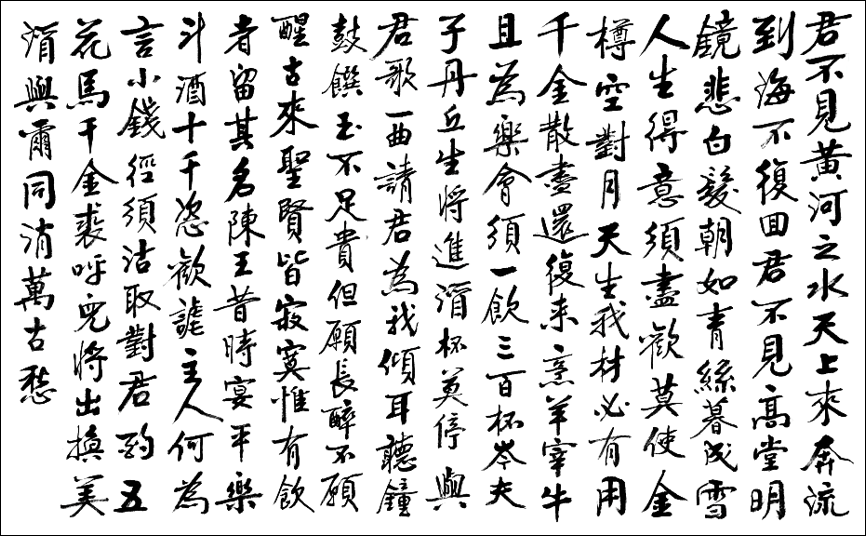 君不見黃河之水天上來奔流
到海不復回君不見高堂明
鏡悲白髮朝如青絲暮成雪
人生得意須盡歡莫使金
樽空對月天生我材必有用
千金散盡還復來烹羊宰牛
且為樂會須一飲三百杯岑夫
子丹丘生將進酒杯莫停與
君歌一曲請君為我傾耳聽鐘
鼓饌玉不足貴但願長醉不願
醒古來聖賢皆寂寞惟有飲
者留其名陳王昔時宴平樂
斗酒十千恣歡謔主人何為
言小錢徑須沽取對君酌五
花馬千金裘呼兒將出換美
酒與爾同消萬古愁